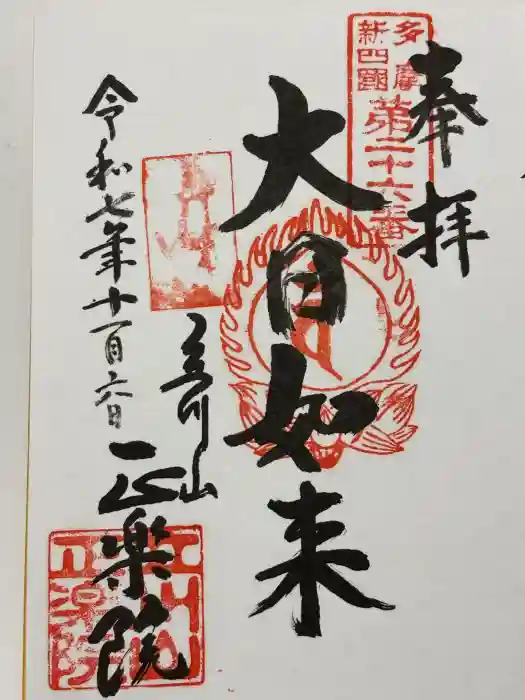 奉拝
多摩
新四國
第二十六番
大日如来
立川山
正楽院
令和七年十一月六日